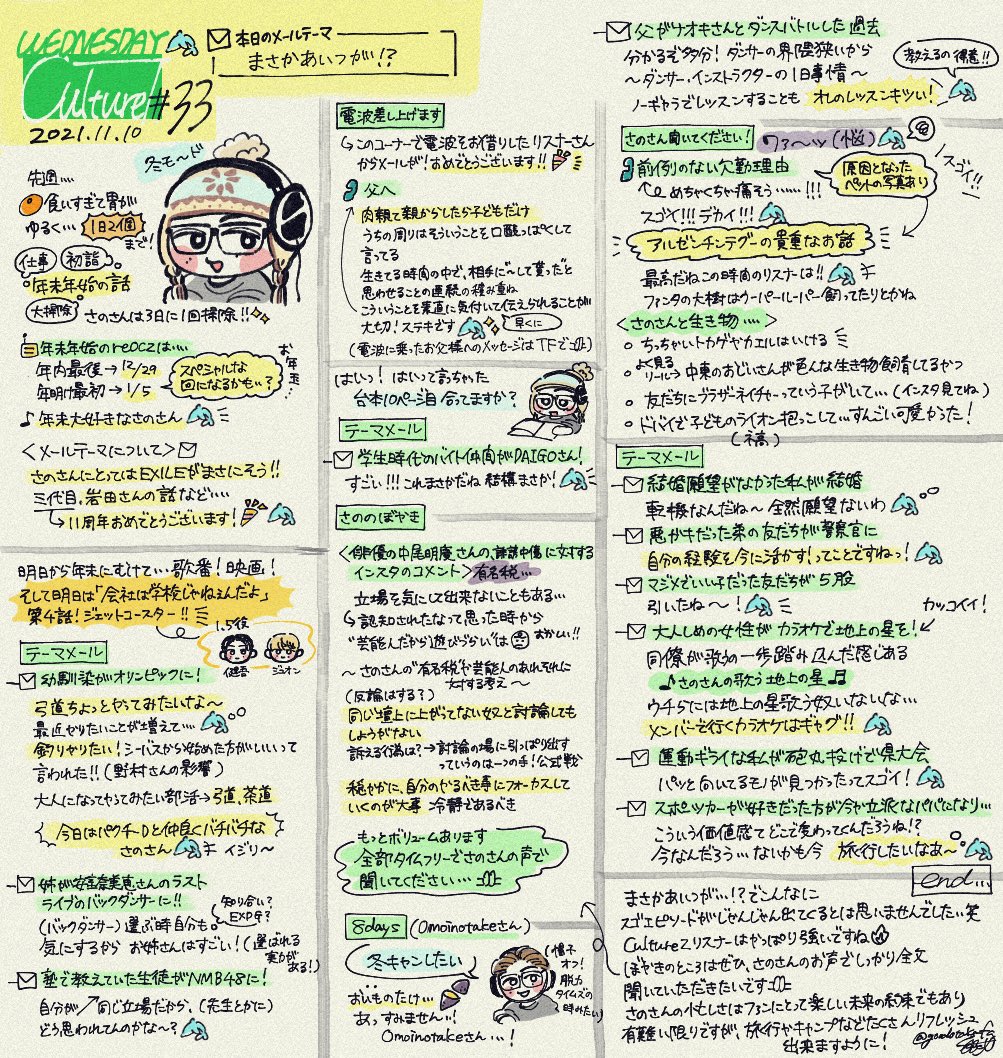 WEDNESDAY
Culture! #33
2021.11.10
本日のメールテーマ
まさかあいつが!?
冬モ〜ド
先週…
食いすぎて胃が
ゆるく… 1日2個
まで!
仕事 初詣
年末年始の話
大掃除 さのさんは3日に1回掃除!!
年末年始のreoczは…
年内最後→12/29
年明け最初→1/5
スペシャルな
回になるかもぃ?
お年玉
♪年末大好きなさのさん
<メールテーマについて>
さのさんにとってはEXILEがまさにそう!!
三代目、岩田さんの話など…
11周年おめでとうございます!
明日から年末にむけて…歌番!映画!
そして明日は「会社は学校じゃねぇんだよ」
第4話!ジェットコースター!!
1.5役
健吾 ジオン
テーマメール
幼馴染がオリンピックに!
弓道ちょっとやってみたいな〜
最近やりたいことが増えて…
釣りやりたい!シーバスから始めた方がいいって
言われた!!(野村さんの影響)
大人になってやってみたい部活→弓道、茶道
今日はパクチーDと仲良くバチバチな
さのさん イジリ〜
姉が安室奈美恵さんのラスト
ライブのバックダンサーに!!
知り合い?
EXPG?
(バックダンサー)選ぶ時自分も
気にするから お姉さんはすごい!(選ばれる
実力が
ある!)
塾で教えていた生徒がNMB48に!
自分が 同じ立場だから、(先生とかに)
どう思われてんのかな〜?
電波差し上げます
このコーナーで電波をお借りしたリスナーさん
からメールが!おめでとうございます!!
父へ
肉親で親からしたら子どもだけ
うちの周りはそういうことを口酸っぱくして
言ってる
生きてる時間の中で、相手に〜して貰ったと
思わせることの連続の積み重ね
こういうことを素直に気付いて伝えられることが
大切!ステキです 早くに
(電波に乗ったお父様へのメッセージはTFで)
はいっ!はいって言っちゃった
台本10ページ目合ってますか?
テーマメール
学生時代のバイト仲間がDAIGOさん!
すごい!!!これまさかだね 結構まさか!
さののぼやき
<俳優の中尾明慶さんの、誹謗中傷に対する
インスタのコメント>有名税…
立場を気にして出来ないこともある…
認知されたなって思った時から
"芸能人だから遊びづらい"は おかしい!!
〜さのさんの"有名税"や芸能人のあれそれに
対する考え〜
(反論はする?)
同じ壇上に上がってない奴と討論しても
しょうがない
訴える行為は?→討論の場に引っぱり出す
っていうのは一つの手!公式戦
穏やかに、自分のやるべき事にフォーカスして
いくのが大事 冷静であるべき
もっとボリュームあります
全部タイムフリーでさのさんの声で
聞いてください…
8days (Omoinotakeさん)
冬キャンしたい
おいものたけ…
あっすみません…!
Omoinotakeさん…!
(帽子
オフ!
脱力
タイムズの
時みたい)
父がナオキさんとダンスバトルした過去
分かるぞ多分!ダンサーの界隈狭いから
〜ダンサー、インストラクターの1日事情〜
ノーギャラでレッスンすることも オレのレッスンキツい!
教えるの得意!!
さのさん聞いてください!
ワァ〜ッ(悩)
前例のない欠勤理由
めちゃくちゃ痛そう……!!!
スゴイ!!!デカイ!!!
原因となった
ペットの写真あり
スゴイ!!
アルゼンチンテグーの貴重なお話
最高だねこの時間のリスナーは!!
ファンタの大樹はウーパールーパー飼ってたりとかね
<さのさんと生き物…>
○ ちっちゃいトカゲやカエルはいける
○ よく見る
リール→中東のおじさんが色んな生き物飼育してるやつ
○ 友だちにブラザーネイチャーっていう子がいて…(インスタ見てね)
○ ドバイで子どものライオン抱っこして…すんごい可愛かった!
テーマメール
結婚願望がなかった私が結婚
転機なんだね〜 全然願望ないわ
悪ガキだった弟の友だちが警察官に
自分の経験を今に活かす!ってことですねっ!
マジメでいい子だった友だちが5股
引いたね〜!
大人しめの女性が カラオケで地上の星を!
カッコイイ!
同僚が歌うの一歩踏み込んだ感じある
♪さのさんの歌う地上の星♫
ウチらには地上の星歌う奴いないな…
メンバーで行くカラオケはギャグ!!
運動ギライな私が砲丸投げで県大会
パッと向いてるモノが見つかったってスゴイ!
スポーツカーが好きだった方が今や立派なパパになり…
こういう価値感てどこで変わってくんだろうね!?
今なんだろう…ないかも今 旅行したいなあ〜
end…
まさかあいつが…!?でこんなに
スゴエピソードがじゃんじゃん出てくるとは思いませんでした笑
Cultureスリスナーはやっぱり強いですね
ぼやきのところはぜひ、さのさんのお声でしっかり全文
聞いていただきたいです
さのさんの忙しさはファンにとって楽しい未来の約束でもあり
有難い限りですが、旅行やキャンプなどたくさんリフレッシュ
出来ますように!